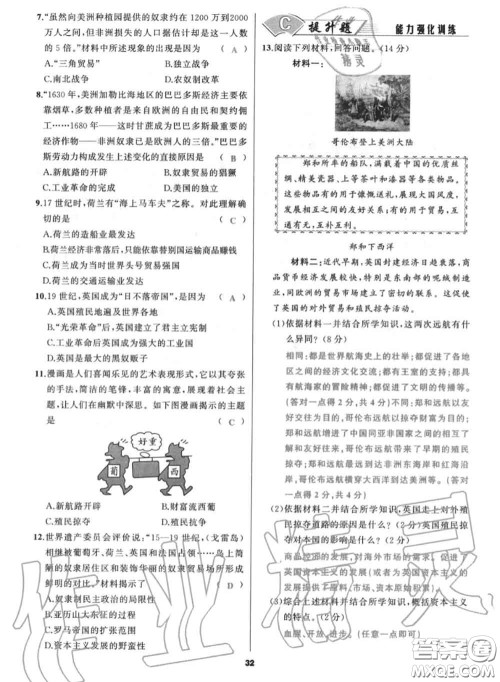 7.“虽然向美洲种植园提供的奴隶约在 1200 万到2000
万人之间,但非洲损失的人口据估计却达到了这一人
数的 5 倍。”材料中所述现象的出现是因为 （ A ）
A.“三角贸易” B.独立战争
C.南北战争 D.农奴制改革
8.“1630 年,美洲加勒比海地区的巴巴多斯经济主要依
靠烟草,多数种植者是来自欧洲的自由民和契约佣
工……1680 年——这时甘蔗成为巴巴多斯最重要的
经济作物——非洲奴隶已是欧洲人的三倍。”巴巴多
斯劳动力构成发生上述变化的直接原因是 （ B ）
A.新航路的开辟 B.奴隶贸易的猖獗
C.工业革命的完成 D.美国的独立
9.17 世纪时,荷兰有“海上马车夫”之称。对此理解确
切的是 （ C ）
A.荷兰的造船业最发达
B.荷兰经济非常落后,只能依靠替别国运输商品赚钱
C.荷兰成为当时世界头号贸易强国
D.荷兰的交通运输业最发达
10.19 世纪,英国成为“日不落帝国”,是因为 （ A ）
A.英国殖民地遍及世界各地
B.“光荣革命”后,英国建立了君主立宪制
C.工业革命后英国成为工业大国
D.英国是最大的黑奴贩子
11.漫画是人们喜闻乐见的艺术表现形式,它以其夸张
的手法,简洁的笔锋,丰富的寓意,展现着社会主
题,让人们在幽默中深思。如下图漫画揭示的主题
是 （ C ）
好重
葡
西
A.新航路开辟 B.财富流西葡
C.殖民掠夺 D.殖民抗争
12.世界遗产委员会评价说:“15—19 世纪,(戈雷岛)
相继被葡萄牙、荷兰、英国和法国占领……岛上简
陋的奴隶居住区和装饰华丽的奴隶贸易场所形成
鲜明的对比。”材料揭示了 （ D ）
A.奴隶制民主政治的局限性
B.亚历山大东征的过程
C.罗马帝国的扩张范围
D.资本主义发展的残酷性
C 提升题 能力强化训练
13.阅读下列材料,回答问题。(14 分)
材料一:
哥伦布登上美洲大陆
郑和所率的船队,满载着中国的优质丝
绸、精美瓷器、上等茶叶和漆器等各类物品。
这些物品有的用于慷慨送礼,展现大国风度,
发展相互之间的友好关系;有的用于贸易,互
通有无,互补互利。
郑和下西洋
材料二:近代早期,英国封建经济日趋衰落,商
品货币经济发展较快,特别是东南部的呢绒制造
业,同欧洲的贸易市场建立了密切的联系。这促进了
英国的对外贸易和殖民掠夺活动。
(1)依据材料一并结合所学知识,这两次远航有
什么异同? (8 分)
相同:都是世界航海史上的壮举;都促进了各地
区之间的经济文化交流;都有王室的支持;都具
有航海家的冒险精神;都促进了文明的传播等。
(答对一点得 2 分,共 4 分)不同:郑和远航为了
友好交往,哥伦布远航以掠夺财富为目的;郑
和远航增进了中国同亚非国家之间的相互了
解和友好往来,哥伦布远航带来了早期的殖民
掠夺;郑和远航最远到达非洲东海岸和红海沿
岸,哥伦布远航横穿大西洋到达美洲等。(答
对一点得 2 分,共 4 分)
(2)依据材料二并结合所学知识,英国走上对外殖
民掠夺道路的原因是什么? (2 分)英国殖民掠
夺对本国的影响是什么? (2 分)
商品经济的发展,对海外市场的需求。促进了
英国资本主义的发展(或为英国资本主义的发
展提供了原料和市场,为资本原始积累创造条件)。
(3)综合上述材料并结合所学知识,概括资本主义
的特点。
血腥、开放、进步。(任意一点即可)
32